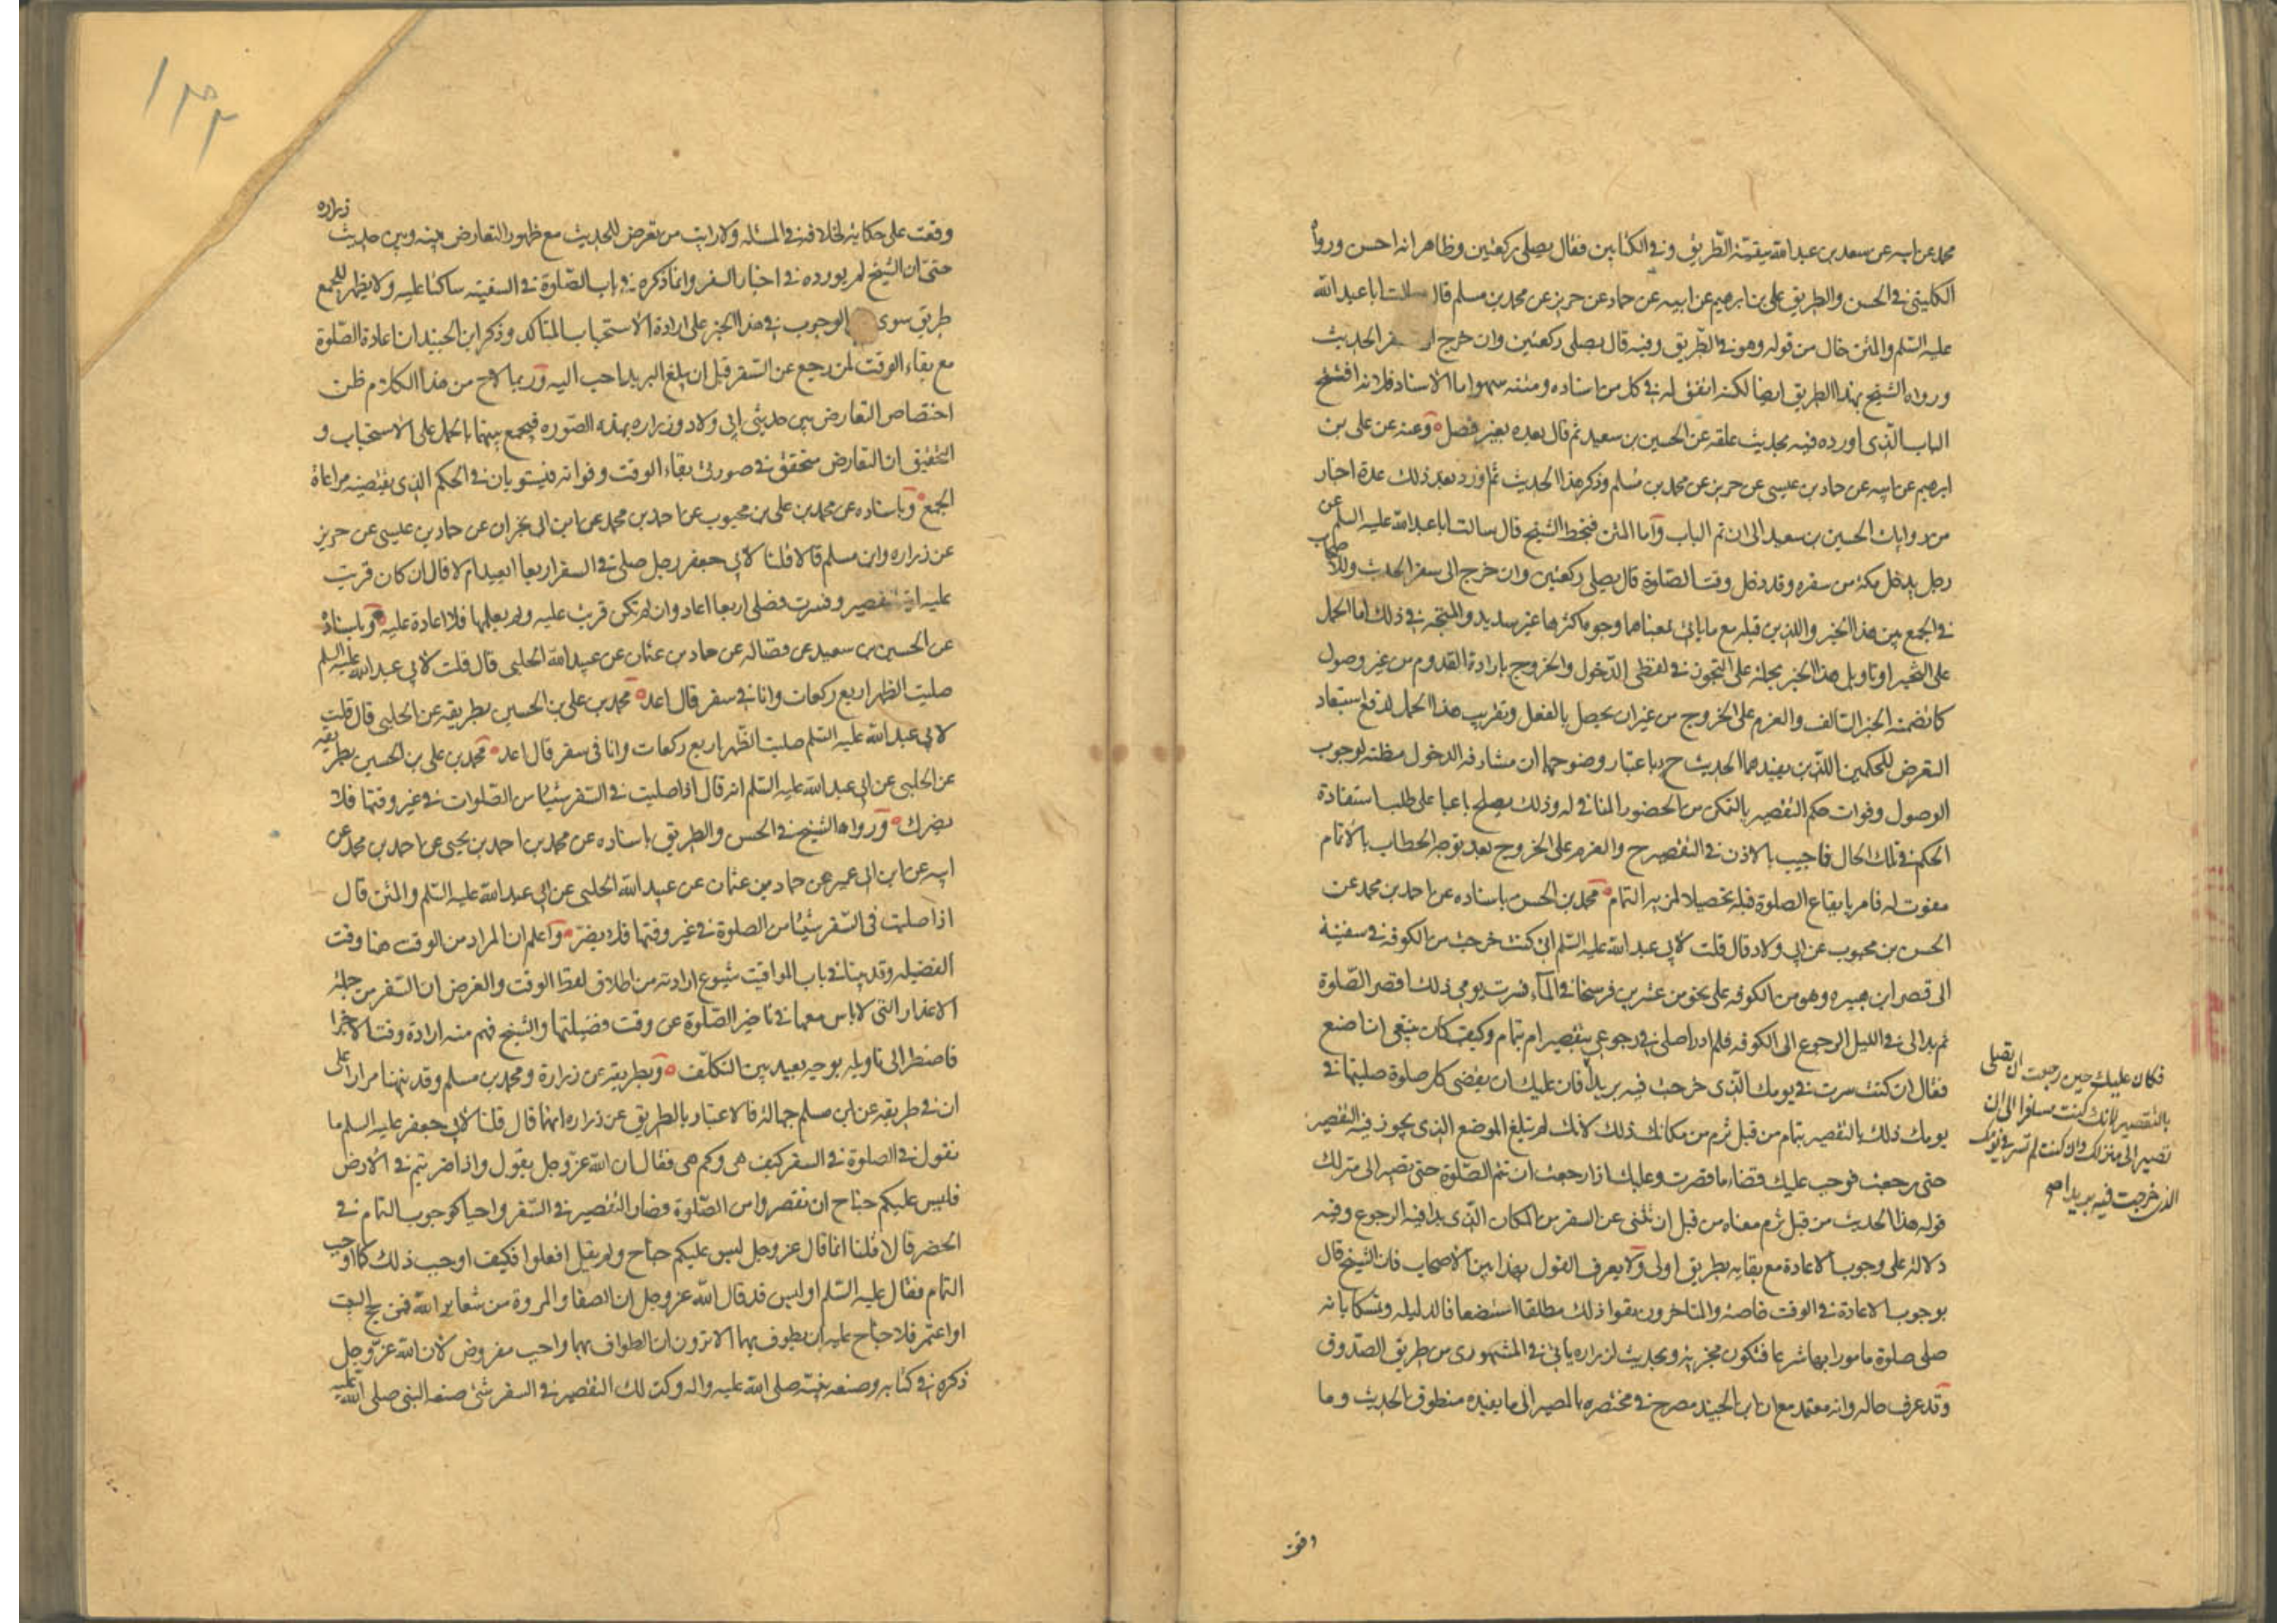 محمد عن ابيه عن سعد بن عبد الله ببقية الطريق وفي الكتابين فقال يصلي ركعتين وظاهر انه احسن ورواه
الكليني في الحسن والطريق علي بن ابرهيم عن ابيه عن حماد عن حريز عن محمد بن مسلم قال سالت ابا عبد الله
عليه السلم والمتن خال من قوله وهو في الطريق وفيه قال يصلي ركعتين وان خرج الى سفر الحديث
ورواه الشيخ بهذا الطريق ايضا لكنه اتفق له في كل من اسناده ومتنه سهو اما الاسناد فلانه افتتح
الباب الذي اورده فيه بحديث علقه عن الحسين بن سعيد ثم قال بعده بغير فصل وعنه عن علي بن
ابرهيم عن ابيه عن حماد بن عيسى عن حريز عن محمد بن مسلم وذكر هذا الحديث ثم اورد بعد ذلك عدة اخبار
من روايات الحسين بن سعيد الى ان تم الباب واما المتن فبخط الشيخ قال سالت ابا عبد الله عليه السلم عن
رجل يدخل مكة من سفره وقد دخل وقت الصلوة قال يصلي ركعتين وان خرج الى سفر الحديث وللاصحاب
في الجمع بين هذا الخبر واللذين قبله مع ما ياتي بمعناهما وجوه اكثرها غير سديد والمتجه في ذلك اما الحمل
على التخيير او تاويل هذا الخبر بحمله على التجوز في لفظي الدخول والخروج بارادة القدوم من غير وصول
كما تضمنه الخبر السالف والعزم على الخروج من غير ان يحصل بالفعل وتقريب هذا الحمل لدفع استبعاد
التعرض للحكمين اللذين يفيدهما الحديث ح باعتبار وضوحهما ان مشارفة الدخول مظنة لوجوب
الوصول وفوات حكم التقصير بالتمكن من الحضور المنافي له وذلك يصلح باعثا على طلب استفادة
الحكم في تلك الحال فاجيب بالاذن في التقصير ح والعزم على الخروج بعد توجه الخطاب بالاتمام
مفوت له فامر بايقاع الصلوة قبله تحصيلا لمزية التمام محمد بن الحسن باسناده عن احمد بن محمد عن
الحسن بن محبوب عن ابي ولاد قال قلت لابي عبد الله عليه السلم اني كنت خرجت من الكوفه في سفينة
الى قصر ابن هبيره وهو من الكوفه على نحو من عشرين فرسخا في المآء فسرت يومي ذلك اقصر الصلوة
ثم بدا لي في الليل الرجوع الى الكوفه فلم ادر اصلي في رجوعي بتقصير ام بتمام وكيف كان ينبغي ان اصنع
فقال ان كنت سرت في يومك الذي خرجت فيه بريدا فان عليك ان يقضى كل صلوة صليتها في
يومك ذلك بالتقصير بتمام من قبل تريم من مكانك ذلك لانك لم تبلغ الموضع الذي يجوز فيه التقصير
حتى رجعت فوجب عليك قضاء ما قصرت وعليك اذا رجعت ان تتم الصلوة حتى تصير الى منزلك
قوله هذا الحديث من قبل تريم معناه من قبل ان تنثني عن السفر من المكان الذي بدا فيه الرجوع وفيه
دلالة على وجوب الاعادة مع بقايه بطريق اولى ولا يعرف القول بهذا بين الاصحاب فان الشيخ قال
بوجوب الاعادة في الوقت خاصة والمتاخرون نفوا ذلك مطلقا استضعافا لدليله وتمسكا بانه
صلى صلوة مامورا بها شرعا فتكون مجزية وبحديث لزراره ياتي في المشهوري من طريق الصدوق
وقد عرف حاله وانه معتمد مع ان ابن الجنيد مصرح في مختصره بالمصير الى ما يفيده منطوق الحديث وما
فكان عليك حين رجعت ان تصلي
بالتقصير لانك كنت مسافرا الى ان
تصير الى منزلك وان كنت لم تسر في يومك
الذي خرجت فيه بريدا صح
وقفت
وقفت على حكاية لخلافه في المسئله ولا رايت من تعرض للحديث مع ظهور التعارض بينه وبين حديث زراره
حتى ان الشيخ لم يورده في اخبار السفر وانما ذكره في باب الصلوة في السفينه ساكتا عليه ولا يظهر للجمع
طريق سوى الوجوب في هذا الخبر على ارادة الاستحباب المتاكد وذكر ابن الجنيد ان اعادة الصلوة
مع بقاء الوقت لمن رجع عن السفر قبل ان يبلغ البريد احب اليه وربما لاح من هذا الكلام ظن
اختصاص التعارض بين حديثي ابي ولاد وزراره بهذه الصوره فيجمع بينهما بالحمل على الاستحباب و
التحقيق ان التعارض متحقق في صورتي بقاء الوقت وفواته فيستويان في الحكم الذي يقتضيه مراعاة
الجمع وباسناده عن محمد بن علي بن محبوب عن احمد بن محمد عن ابن ابي نجران عن حماد بن عيسى عن حريز
عن زراره وابن مسلم قالا قلنا لابي جعفر رجل صلى في السفر اربعا ايعيد ام لا قال ان كان قريت
عليه اية التقصير وفسرت فصلى اربعا اعاد وان لم تكن قريت عليه ولم يعلمها فلا اعادة عليه وباسناده
عن الحسين بن سعيد عن فضاله عن حماد بن عثمان عن عبيد الله الحلبي قال قلت لابي عبد الله عليه السلم
صليت الظهر اربع ركعات وانا في سفر قال اعد محمد بن علي بن الحسين بطريقه عن الحلبي قال قلت
لابي عبد الله عليه السلم صليت الظهر اربع ركعات وانا في سفر قال اعد محمد بن علي بن الحسين بطريقه
عن الحلبي عن ابي عبد الله عليه السلم انه قال اذا صليت في السفر شيئا من الصلوات في غير وقتها فلا
يضرك ورواه الشيخ في الحسن والطريق باسناده عن محمد بن احمد بن يحيى عن احمد بن محمد عن
ابيه عن ابن ابي عمير عن حماد بن عثمان عن عبيد الله الحلبي عن ابي عبد الله عليه السلم والمتن قال
اذا صليت في السفر شيئا من الصلوة في غير وقتها فلا يضر واعلم ان المراد من الوقت هنا وقت
الفضيله وقد بينا في باب المواقيت شيوع ارادته من اطلاق لفظ الوقت والغرض ان السفر من جملة
الاعذار التي لا باس معها في تاخير الصلوة عن وقت فضيلتها والشيخ فهم منه ارادة وقت الاجزا
فاضطر الى تاويله بوجه بعيد بين التكلف وبطريقه عن زرارة ومحمد بن مسلم وقد نبهنا مرارا على
ان في طريقه عن ابن مسلم جهالة فالاعتبار بالطريق عن زراره انهما قال قلنا لابي جعفر عليه السلم ما
نقول في الصلوة في السفر كيف هي وكم هي فقال ان الله عز وجل يقول واذا ضربتم في الارض
فليس عليكم جناح ان تقصروا من الصلوة فصار التقصير في السفر واجبا كوجوب التمام في
الحضر قالا قلنا انما قال عز وجل ليس عليكم جناح ولم يقل افعلوا فكيف اوجب ذلك كما اوجب
التمام فقال عليه السلم اوليس قد قال الله عز وجل ان الصفا والمروة من شعاير الله فمن حج البيت
او اعتمر فلا جناح عليه ان يطوف بهما الا ترون ان الطواف بهما واجب مفروض لان الله عز وجل
ذكره في كتابه وصنعه نبيه صلى الله عليه واله وكذلك التقصير في السفر شئ صنعه النبي صلى الله عليه